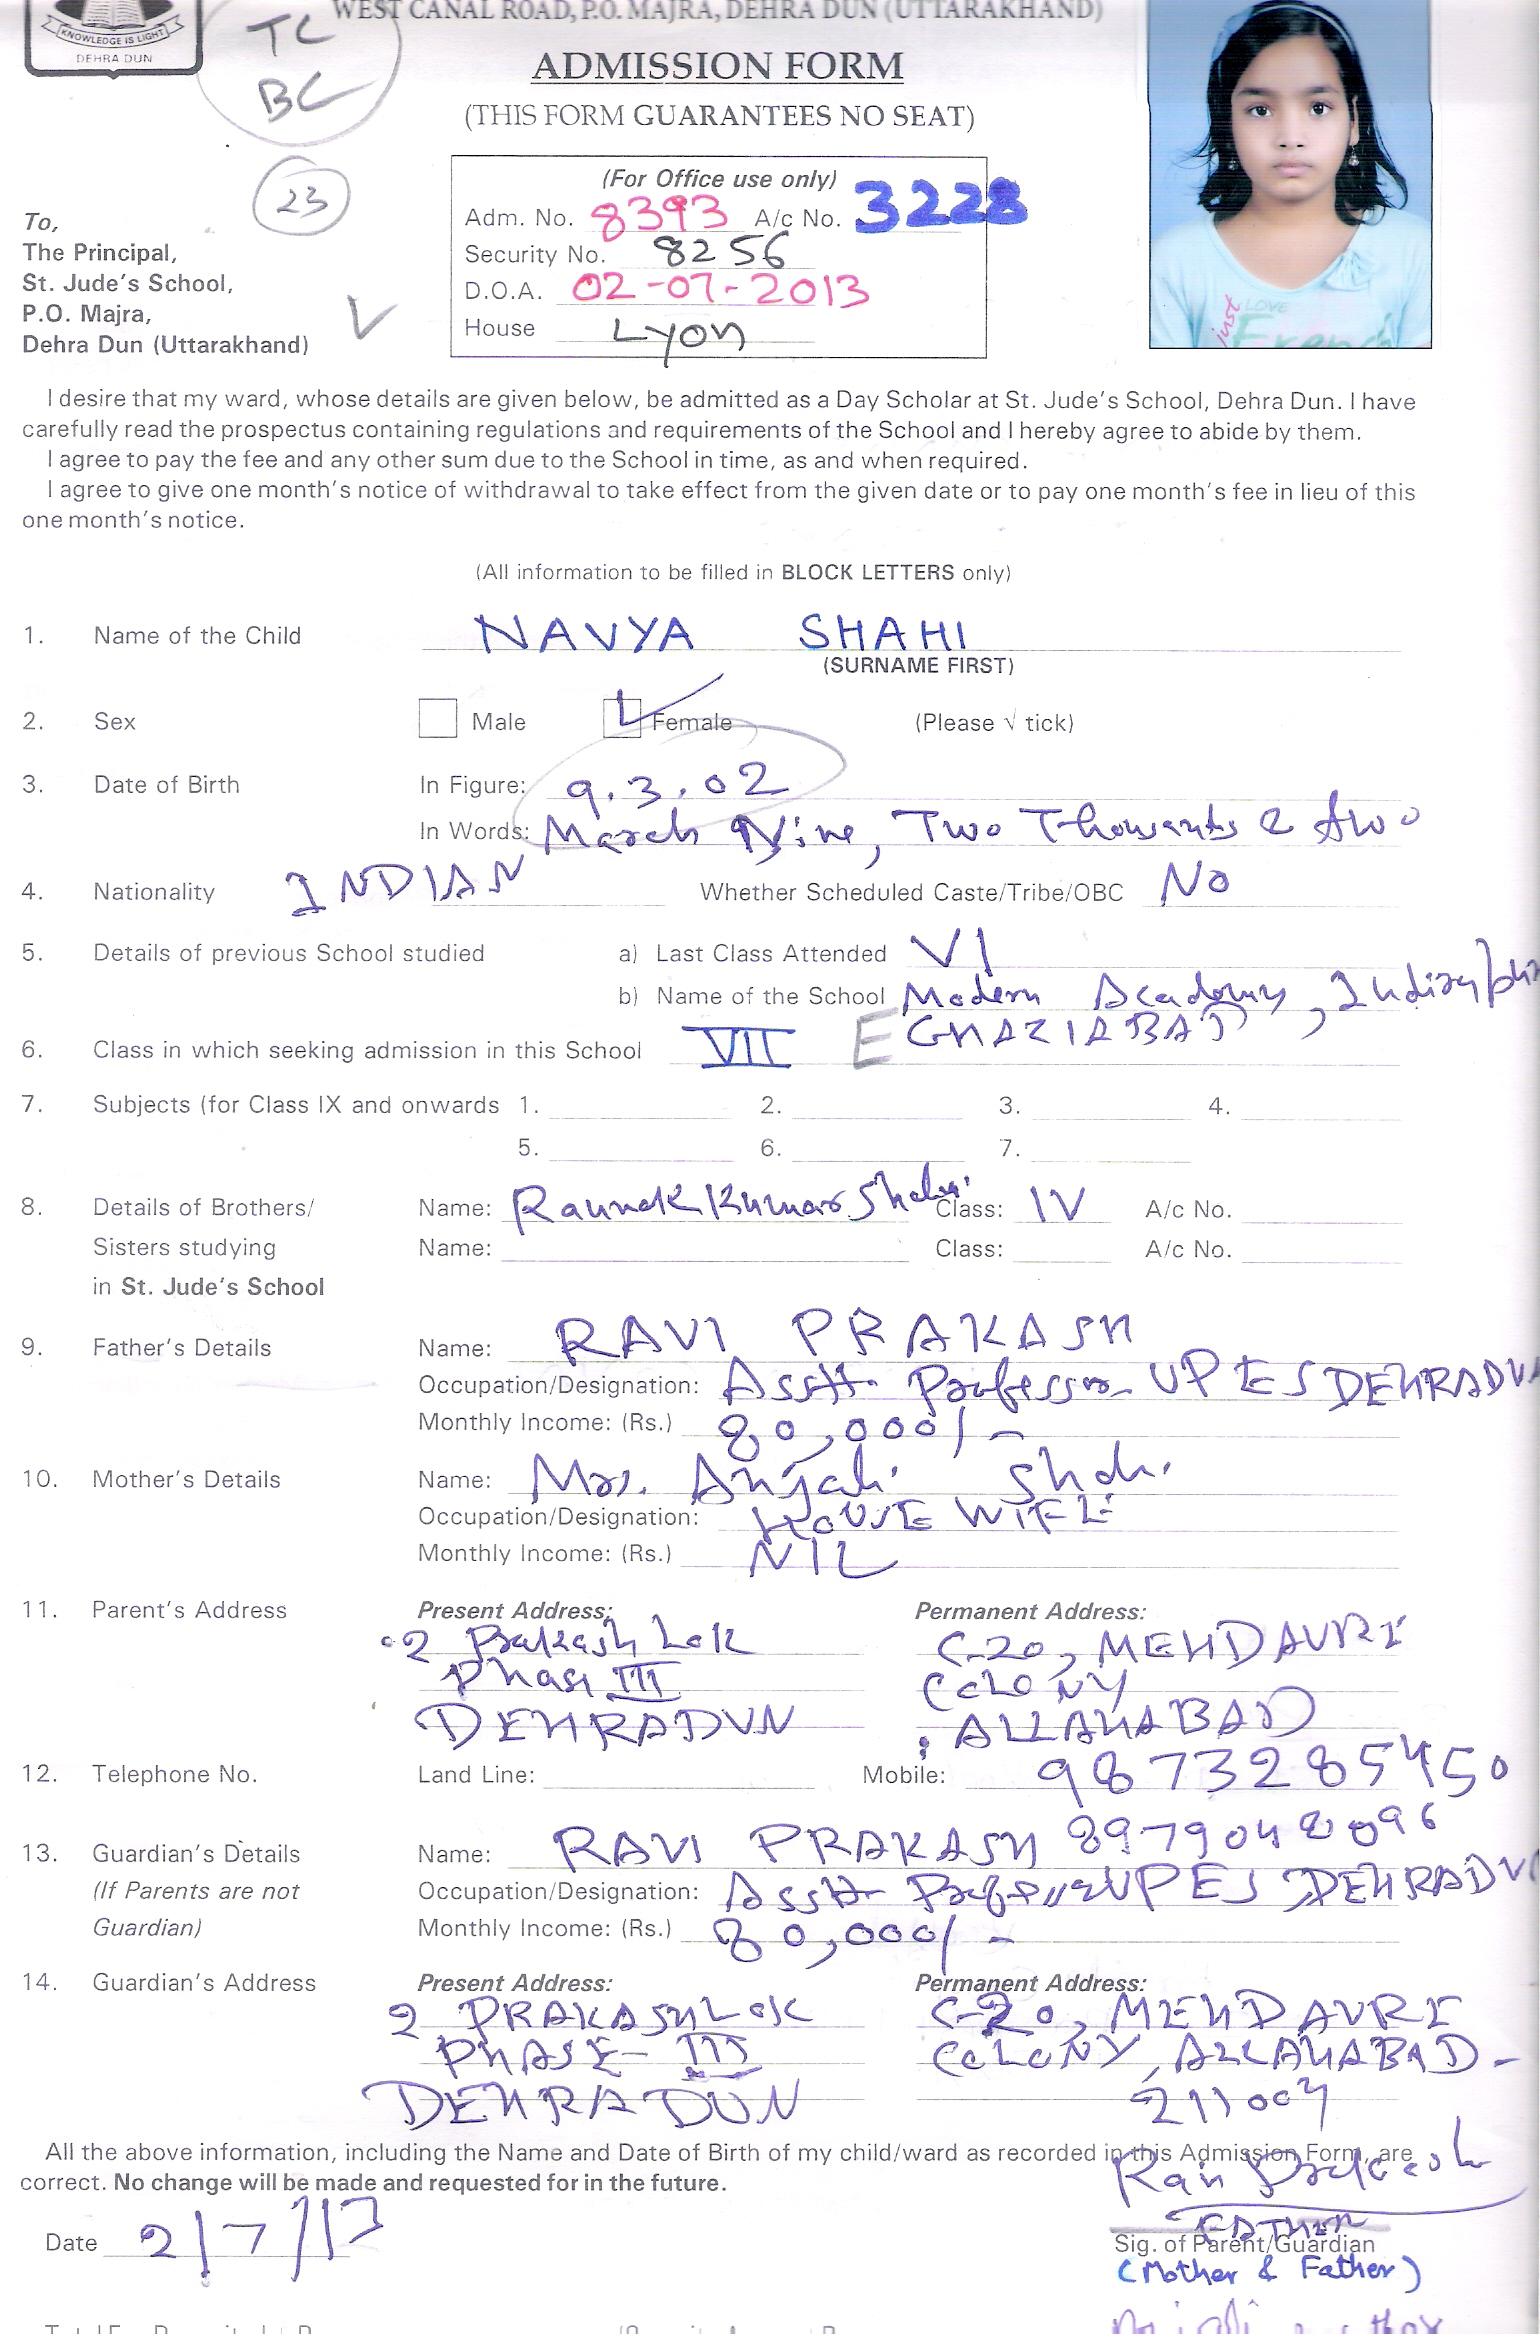 WEST CANAL ROAD, P.O. MAJRA, DEHRA DUN (UTTARAKHAND)
KNOWLEDGE IS LIGHT
DEHRA DUN
TC
BC
ADMISSION FORM
(THIS FORM GUARANTEES NO SEAT)
23
(For Office use only)
Adm. No. 8393 A/c No. 3228
Security No. 8256
D.O.A. 02-07-2013
House Lyon
To,
The Principal,
St. Jude's School,
P.O. Majra,
Dehra Dun (Uttarakhand)
just LOVE
I desire that my ward, whose details are given below, be admitted as a Day Scholar at St. Jude's School, Dehra Dun. I have
carefully read the prospectus containing regulations and requirements of the School and I hereby agree to abide by them.
I agree to pay the fee and any other sum due to the School in time, as and when required.
I agree to give one month's notice of withdrawal to take effect from the given date or to pay one month's fee in lieu of this
one month's notice.
(All information to be filled in BLOCK LETTERS only)
1. Name of the Child NAVYA SHAHI
(SURNAME FIRST)
2. Sex Male Female (Please √ tick)
3. Date of Birth In Figure: 9.3.02
In Words: March Nine, Two Thousands & two
4. Nationality INDIAN Whether Scheduled Caste/Tribe/OBC No
5. Details of previous School studied a) Last Class Attended VI
b) Name of the School Modern Academy,
GHAZIABAD
6. Class in which seeking admission in this School VII E
7. Subjects (for Class IX and onwards 1. 2. 3. 4.
5. 6. 7.
8. Details of Brothers/ Name: Raunak Kumar Shahi Class: IV A/c No.
Sisters studying Name: Class: A/c No.
in St. Jude's School
9. Father's Details Name: RAVI PRAKASH
Occupation/Designation: Asstt. Professor UPES DEHRADUN
Monthly Income: (Rs.) 80,000/-
10. Mother's Details Name: Mrs. Anjali Shahi
Occupation/Designation: HOUSE WIFE
Monthly Income: (Rs.) NIL
11. Parent's Address Present Address: Permanent Address:
2 Prakash Lok C-20, MEHDAURI
Phase III COLONY
DEHRADUN ALLAHABAD
12. Telephone No. Land Line: Mobile: 9873285450
8979048096
13. Guardian's Details Name: RAVI PRAKASH
(If Parents are not Occupation/Designation: Asstt Professor UPES DEHRADUN
Guardian) Monthly Income: (Rs.) 80,000/-
14. Guardian's Address Present Address: Permanent Address:
2 PRAKASH LOK C-20, MEHDAURI
PHASE-III COLONY, ALLAHABAD-
DEHRADUN 211004
All the above information, including the Name and Date of Birth of my child/ward as recorded in this Admission Form, are
correct. No change will be made and requested for in the future.
Ravi Prakash
FATHER
Date 2/7/13 Sig. of Parent/Guardian
(Mother & Father)